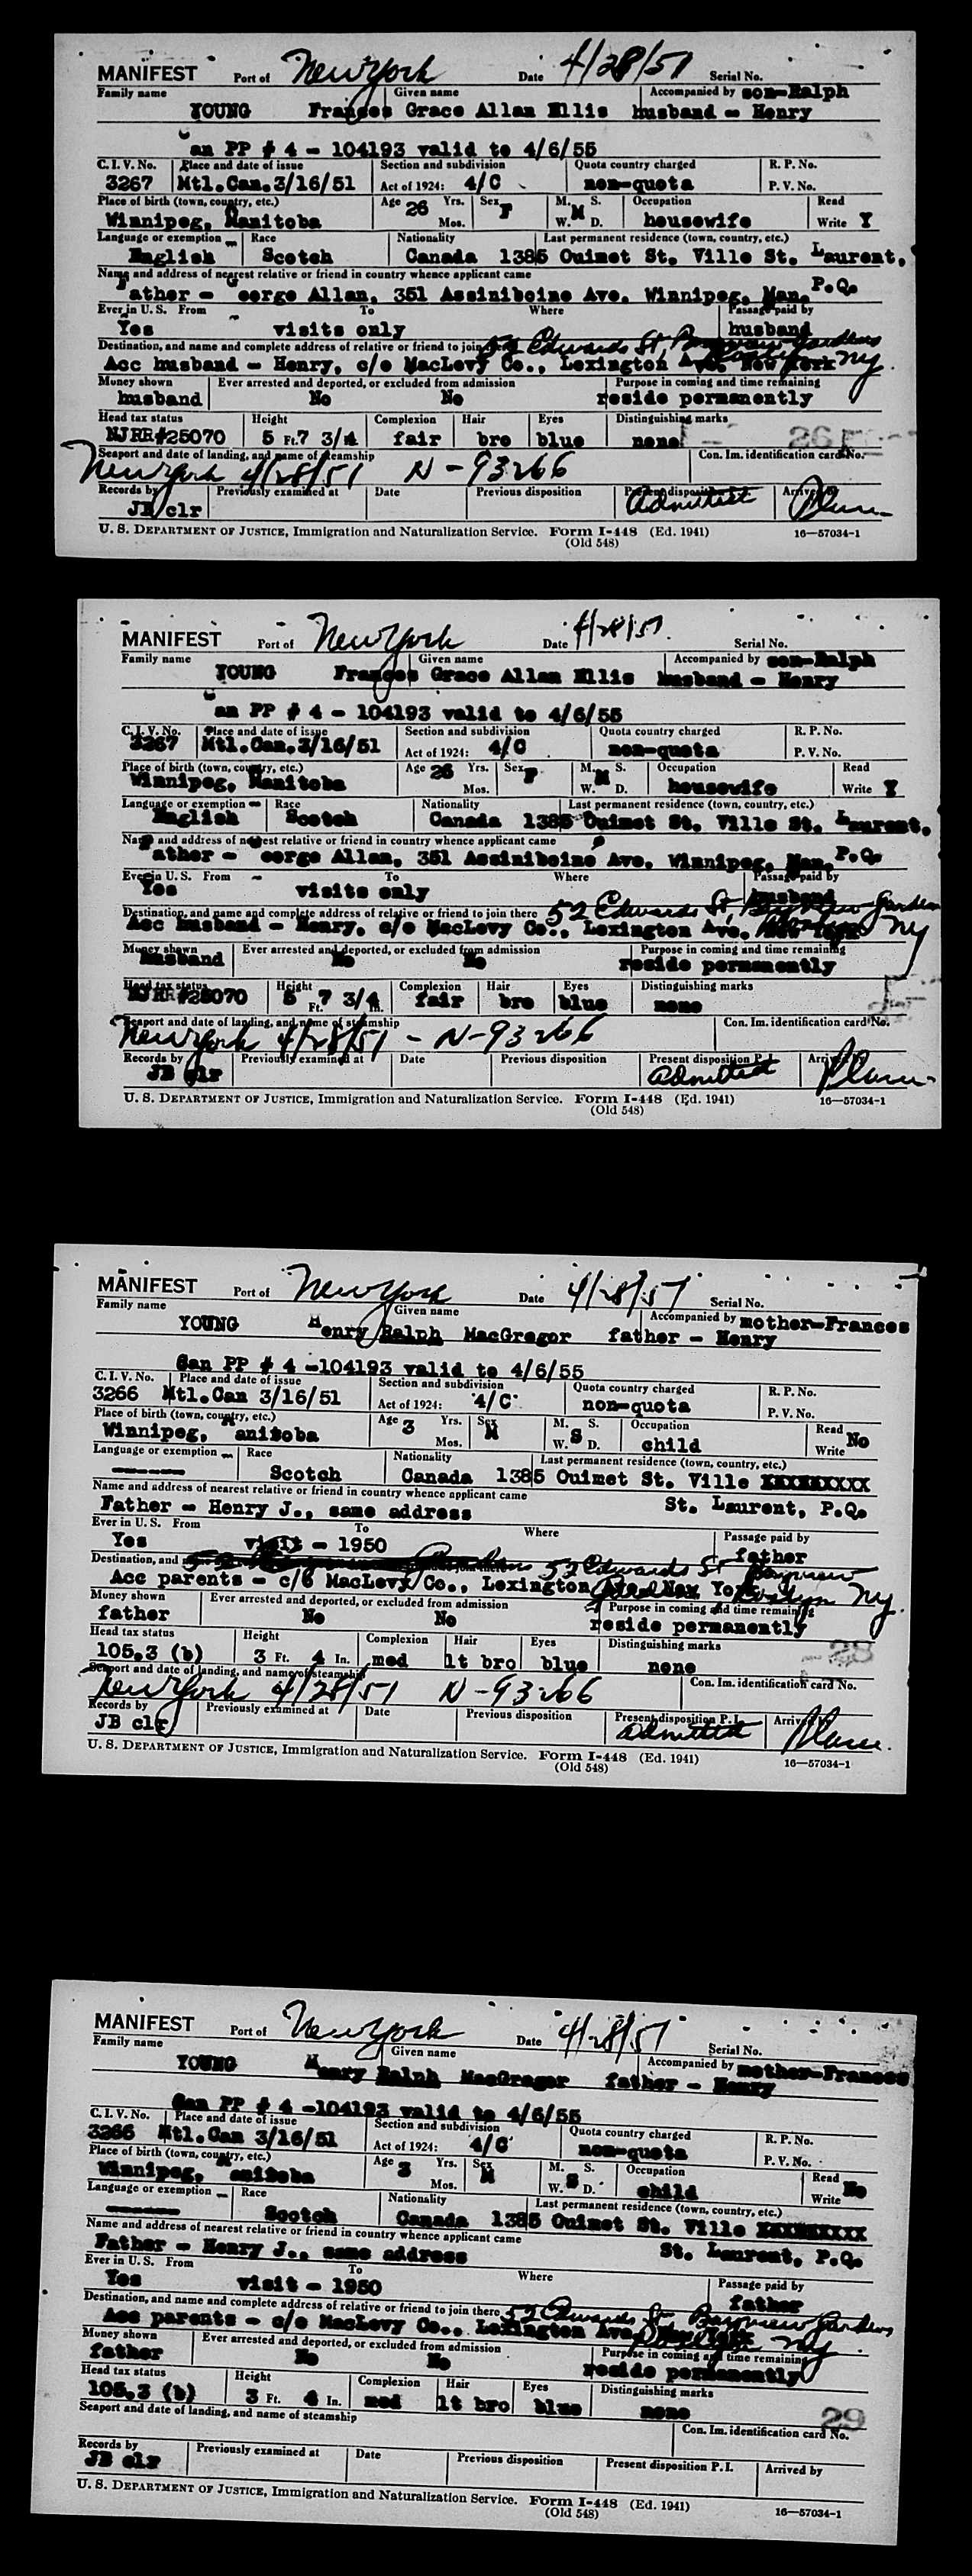 MANIFEST Port of New York Date 4/28/51 Serial No.
Family name Given name Accompanied by son-Ralph
YOUNG Frances Grace Allan Ellis husband - Henry
an PP # 4 - 104193 valid to 4/6/55
C. I. V. No. Place and date of issue Section and subdivision Quota country charged R. P. No.
3267 Mtl.Can.3/16/51 Act of 1924: 4/C non-quota P. V. No.
Place of birth (town, country, etc.) Age 26 Yrs. Sex F M. S. Occupation Read
Winnipeg, Manitoba Mos. W. M D. housewife Write Y
Language or exemption Race Nationality Last permanent residence (town, country, etc.)
English Scotch Canada 1385 Ouimet St. Ville St. Laurent,
Name and address of nearest relative or friend in country whence applicant came
Father - George Allan, 351 Assiniboine Ave. Winnipeg, Man. P.Q.
Ever in U. S. From To Where Passage paid by
Yes visits only husband
Destination, and name and complete address of relative or friend to join there 52 Edwards St, Bayview Gardens
Acc husband - Henry, c/o MacLevy Co., Lexington Ave. New York NY.
Money shown Ever arrested and deported, or excluded from admission Purpose in coming and time remaining
husband No No reside permanently
Head tax status Height Complexion Hair Eyes Distinguishing marks
NJRR#25070 5 Ft.7 3/4 fair bro blue none
Seaport and date of landing, and name of steamship Con. Im. identification card No.
New York 4/28/51 N-93266
Records by Previously examined at Date Previous disposition Present disposition P. I. Arrived by
JB/clr Admitted
U. S. DEPARTMENT OF JUSTICE, Immigration and Naturalization Service. Form I-448 (Ed. 1941) 16—57034-1
(Old 548)
MANIFEST Port of New York Date 4/28/51 Serial No.
Family name Given name Accompanied by son-Ralph
YOUNG Frances Grace Allan Ellis husband - Henry
an PP # 4 - 104193 valid to 4/6/55
C. I. V. No. Place and date of issue Section and subdivision Quota country charged R. P. No.
3267 Mtl.Can.3/16/51 Act of 1924: 4/C non-quota P. V. No.
Place of birth (town, country, etc.) Age 26 Yrs. Sex F M. S. Occupation Read
Winnipeg, Manitoba Mos. W. M D. housewife Write Y
Language or exemption Race Nationality Last permanent residence (town, country, etc.)
English Scotch Canada 1385 Ouimet St. Ville St. Laurent,
Name and address of nearest relative or friend in country whence applicant came
ather - eorge Allan, 351 Assiniboine Ave. Winnipeg, Man. P.Q.
Ever in U. S. From To Where Passage paid by
Yes visits only husband
Destination, and name and complete address of relative or friend to join there 52 Edwards St, Bayview Gardens
Acc husband - Henry, c/o MacLevy Co., Lexington Ave. New York NY
Money shown Ever arrested and deported, or excluded from admission Purpose in coming and time remaining
husband No No reside permanently
Head tax status Height Complexion Hair Eyes Distinguishing marks
NJRR#25070 5 Ft. 7 3/4 In. fair bro blue none
Seaport and date of landing, and name of steamship Con. Im. identification card No.
New York 4/28/51 - N-93266
Records by Previously examined at Date Previous disposition Present disposition P. I. Arrived by
JB clr Admitted
U. S. DEPARTMENT OF JUSTICE, Immigration and Naturalization Service. Form I-448 (Ed. 1941) 16—57034-1
(Old 548)
MANIFEST Port of New York Date 4/28/51 Serial No.
Family name Given name Accompanied by mother-Frances
YOUNG Henry Ralph MacGregor father - Henry
Can PP # 4 -104193 valid to 4/6/55
C. I. V. No. Place and date of issue Section and subdivision Quota country charged R. P. No.
3266 Mtl.Can 3/16/51 Act of 1924: 4/C non-quota P. V. No.
Place of birth (town, country, etc.) Age 3 Yrs. Sex M M. S. Occupation Read No
Winnipeg, Manitoba Mos. W. S D. child Write
Language or exemption Race Nationality Last permanent residence (town, country, etc.)
------- Scotch Canada 1385 Ouimet St. Ville XXXXXXXXX
Name and address of nearest relative or friend in country whence applicant came St. Laurent, P.Q.
Father - Henry J., same address
Ever in U. S. From To Where Passage paid by
Yes visit - 1950 father
Destination, and 52 Edwards St Bayview
Acc parents - c/o MacLevy Co., Lexington Ave. New York NY.
Money shown Ever arrested and deported, or excluded from admission Purpose in coming and time remaining
father No No reside permanently
Head tax status Height Complexion Hair Eyes Distinguishing marks
105.3 (b) 3 Ft. 4 In. med lt bro blue none 28
Seaport and date of landing, and name of steamship Con. Im. identification card No.
New York 4/28/51 N-93266
Records by Previously examined at Date Previous disposition Present disposition P. I. Arrived by
JB clr Admitted
U. S. DEPARTMENT OF JUSTICE, Immigration and Naturalization Service. Form I-448 (Ed. 1941) 16—57034-1
(Old 548)
MANIFEST Port of New York Date 4/28/51 Serial No.
Family name Given name Accompanied by mother-Frances
YOUNG Henry Ralph MacGregor father - Henry
Can PP # 4 -104193 valid to 4/6/55
C. I. V. No. Place and date of issue Section and subdivision Quota country charged R. P. No.
3266 Mtl.Can 3/16/51 Act of 1924: 4/C non-quota P. V. No.
Place of birth (town, country, etc.) Age 3 Yrs. Sex M M. S. Occupation Read No
Winnipeg, anitoba Mos. W. S D. child Write
Language or exemption Race Nationality Last permanent residence (town, country, etc.)
------- Scotch Canada 1385 Ouimet St. Ville XXXXXXXXX
Name and address of nearest relative or friend in country whence applicant came St. Laurent, P.Q.
Father - Henry J., same address
Ever in U. S. From To Where Passage paid by
Yes visit - 1950 father
Destination, and name and complete address of relative or friend to join there 52 Edwards St Bayview Gardens
Acc parents - c/o MacLevy Co., Lexington Ave. New York NY.
Money shown Ever arrested and deported, or excluded from admission Purpose in coming and time remaining
father No No reside permanently
Head tax status Height Complexion Hair Eyes Distinguishing marks
105.3 (b) 3 Ft. 4 In. med lt bro blue none 29
Seaport and date of landing, and name of steamship Con. Im. identification card No.
Records by Previously examined at Date Previous disposition Present disposition P. I. Arrived by
JB clr
U. S. DEPARTMENT OF JUSTICE, Immigration and Naturalization Service. Form I-448 (Ed. 1941) 16—57034-1
(Old 548)